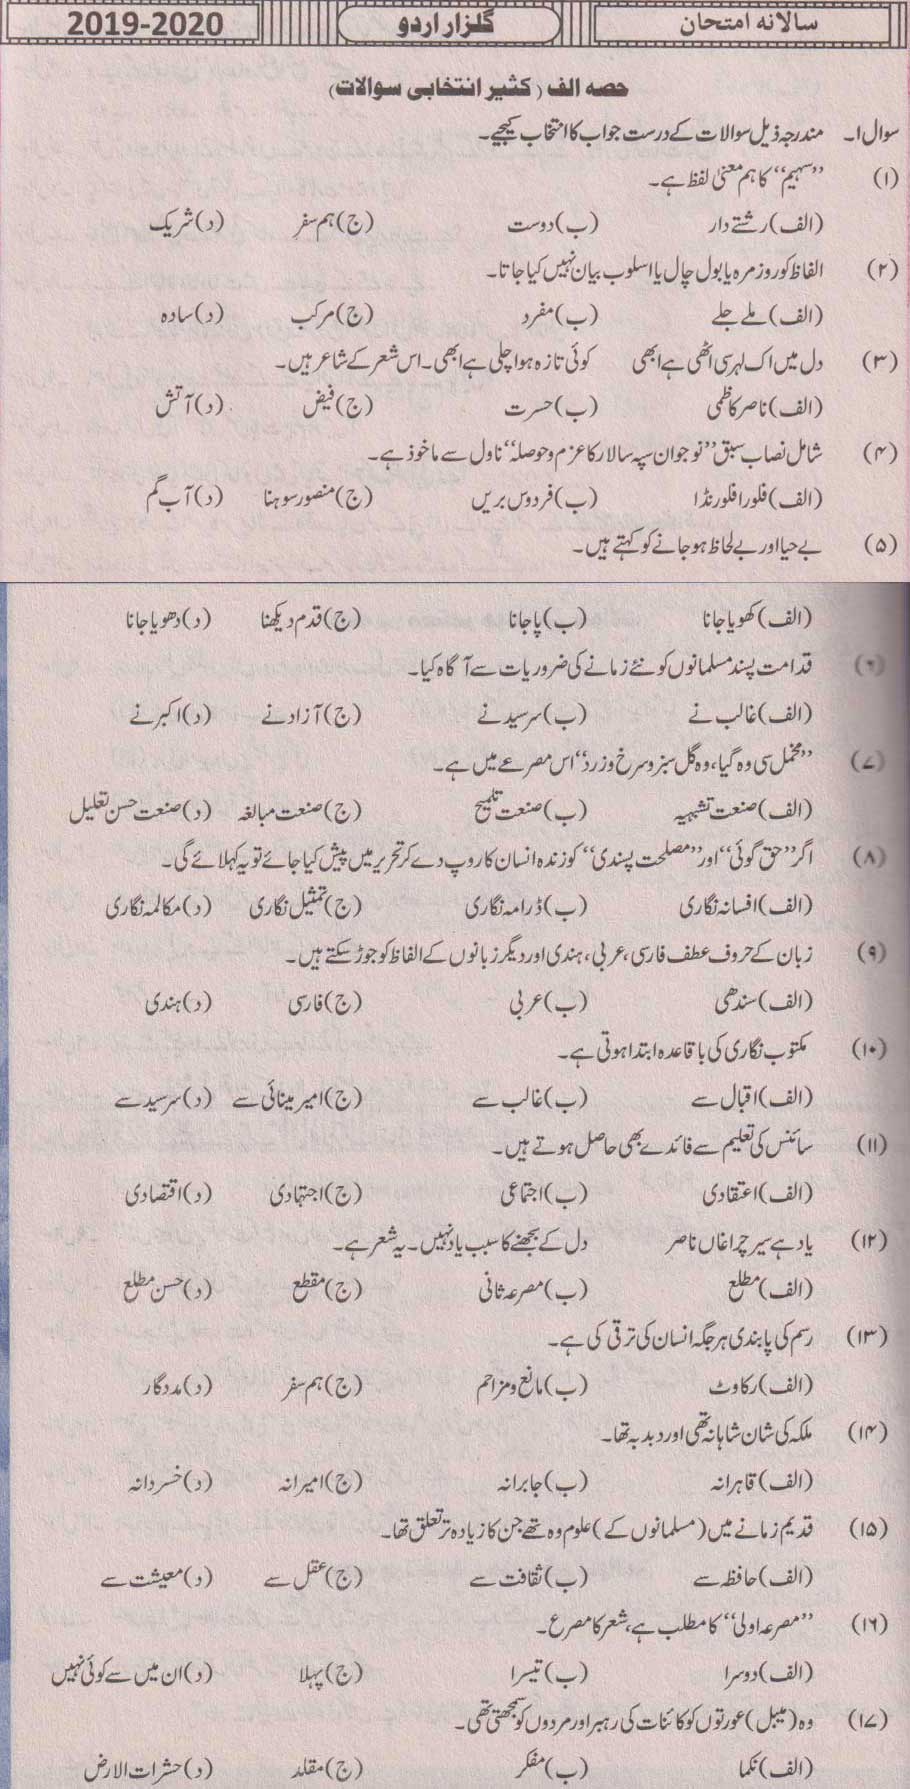 سالانہ امتحان گلزار اردو 2019-2020
حصہ الف (کثیر انتخابی سوالات)
سوال ۱۔ مندرجہ ذیل سوالات کے درست جواب کا انتخاب کیجیے۔
(۱) ”سہیم“ کا ہم معنیٰ لفظ ہے۔
(الف) رشتے دار (ب) دوست (ج) ہم سفر (د) شریک
(۲) الفاظ کو روزمرہ یا بول چال یا اسلوب بیان نہیں کیا جاتا۔
(الف) ملے جلے (ب) مفرد (ج) مرکب (د) سادہ
(۳) دل میں اک لہر سی اٹھی ہے ابھی کوئی تازہ ہوا چلی ہے ابھی۔ اس شعر کے شاعر ہیں۔
(الف) ناصر کاظمی (ب) حسرت (ج) فیض (د) آتش
(۴) شامل نصاب سبق ”نوجوان سپہ سالار کا عزم و حوصلہ“ ناول سے ماخوذ ہے۔
(الف) فلورا فلورنڈا (ب) فردوس بریں (ج) منصور سوہنا (د) آب گم
(۵) بے حیا اور بے لحاظ ہو جانے کو کہتے ہیں۔
(الف) کھویا جانا (ب) پا جانا (ج) قدم دیکھنا (د) دھویا جانا
(۶) قدامت پسند مسلمانوں کو نئے زمانے کی ضروریات سے آگاہ کیا۔
(الف) غالب نے (ب) سرسید نے (ج) آزاد نے (د) اکبر نے
(۷) ”مخمل سی وہ گیا، وہ گل سبز و سرخ و زرد“ اس مصرعے میں ہے۔
(الف) صنعت تشبیہ (ب) صنعت تلمیح (ج) صنعت مبالغہ (د) صنعت حسن تعلیل
(۸) اگر ”حق گوئی“ اور ”مصلحت پسندی“ کو زندہ انسان کا روپ دے کر تحریر میں پیش کیا جائے تو یہ کہلائے گی۔
(الف) افسانہ نگاری (ب) ڈرامہ نگاری (ج) تمثیل نگاری (د) مکالمہ نگاری
(۹) زبان کے حروف عطف فارسی، عربی، ہندی اور دیگر زبانوں کے الفاظ کو جوڑ سکتے ہیں۔
(الف) سندھی (ب) عربی (ج) فارسی (د) ہندی
(۱۰) مکتوب نگاری کی باقاعدہ ابتدا ہوتی ہے۔
(الف) اقبال سے (ب) غالب سے (ج) امیر مینائی سے (د) سرسید سے
(۱۱) سائنس کی تعلیم سے فائدے بھی حاصل ہوتے ہیں۔
(الف) اعتقادی (ب) اجتماعی (ج) اجتہادی (د) اقتصادی
(۱۲) یاد ہے سیر چراغاں ناصر دل کے بجھنے کا سبب یاد نہیں۔ یہ شعر ہے۔
(الف) مطلع (ب) مصرعہ ثانی (ج) مقطع (د) حسن مطلع
(۱۳) رسم کی پابندی ہر جگہ انسان کی ترقی کی ہے۔
(الف) رکاوٹ (ب) مانع و مزاحم (ج) ہم سفر (د) مددگار
(۱۴) ملکہ کی شان شاہانہ تھی اور دبدبہ تھا۔
(الف) قاہرانہ (ب) جابرانہ (ج) امیرانہ (د) خسردانہ
(۱۵) قدیم زمانے میں (مسلمانوں کے) علوم وہ تھے جن کا زیادہ تر تعلق تھا۔
(الف) حافظہ سے (ب) ثقافت سے (ج) عقل سے (د) معیشت سے
(۱۶) ”مصرعہ اولیٰ“ کا مطلب ہے، شعر کا مصرع۔
(الف) دوسرا (ب) تیسرا (ج) پہلا (د) ان میں سے کوئی نہیں
(۱۷) وہ (میبل) عورتوں کو کائنات کی رہبر اور مردوں کو سمجھتی تھی۔
(الف) نکما (ب) مفکر (ج) مقلد (د) حشرات الارض